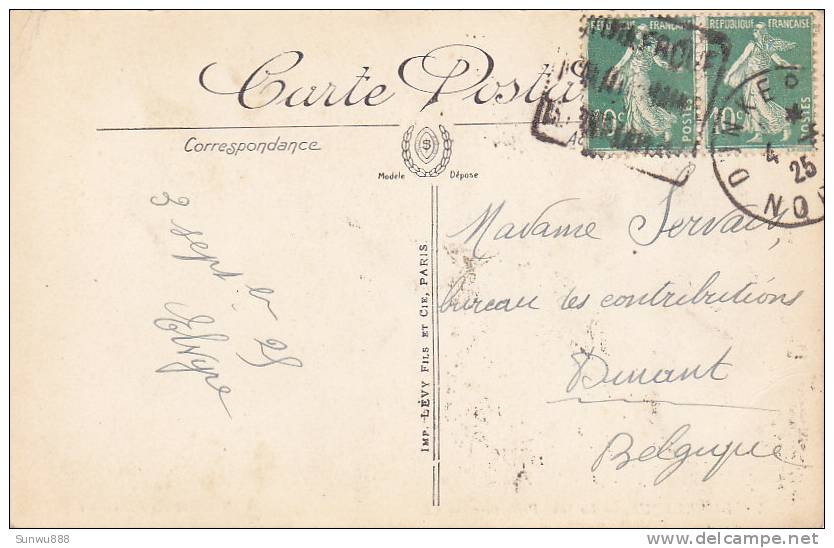 Carte Postale
RÉPUBLIQUE FRANÇAISE
RÉPUBLIQUE FRANÇAISE
10c
POSTES
10c
POSTES
Correspondance
Modèle Déposé
4
25
3 sept 25
Madame Servais,
bureau des contributions
Dinant
Belgique
IMP. LÉVY FILS ET CIE, PARIS.
Sunwu888
delcampe.net